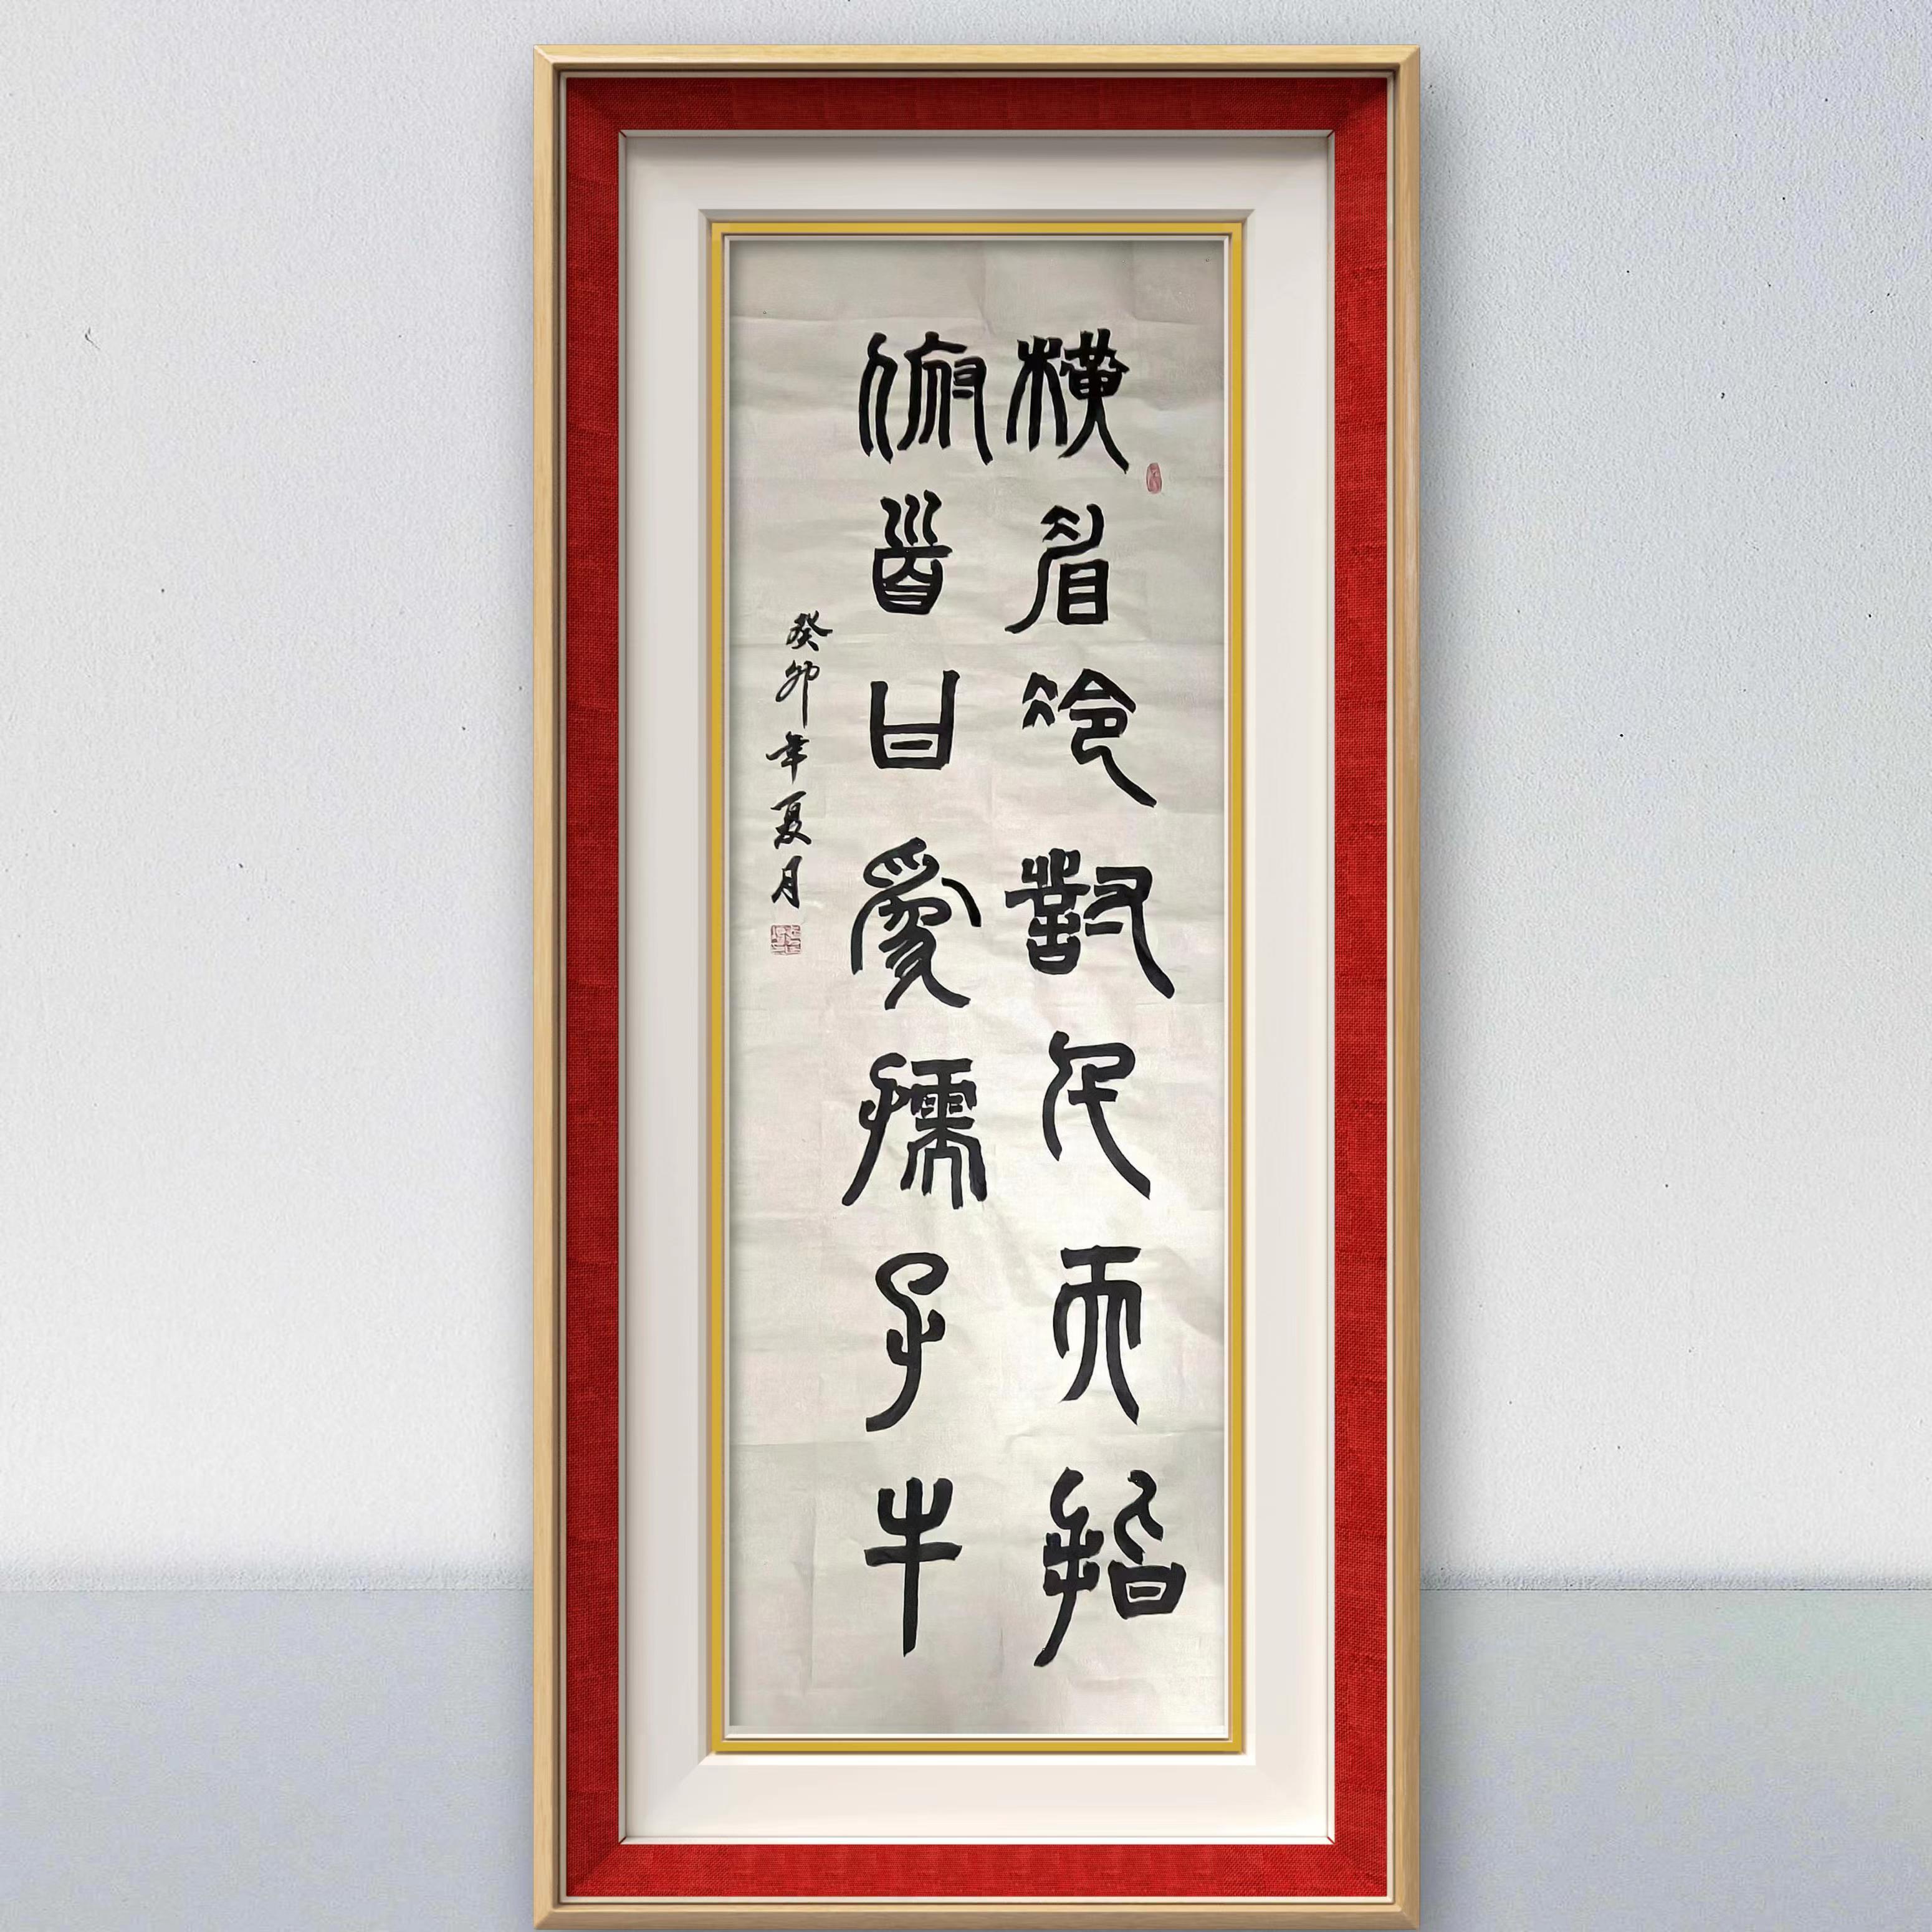 橫眉冷對千夫指
俯首甘為孺子牛
癸卯年夏月